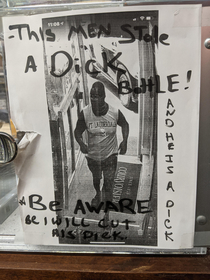 -THIS MEN STOLE
A "DICK"
BottLE!
AND HE IS A DICK
*BE AWARE
BE I WILL CUT
HIS DICK.